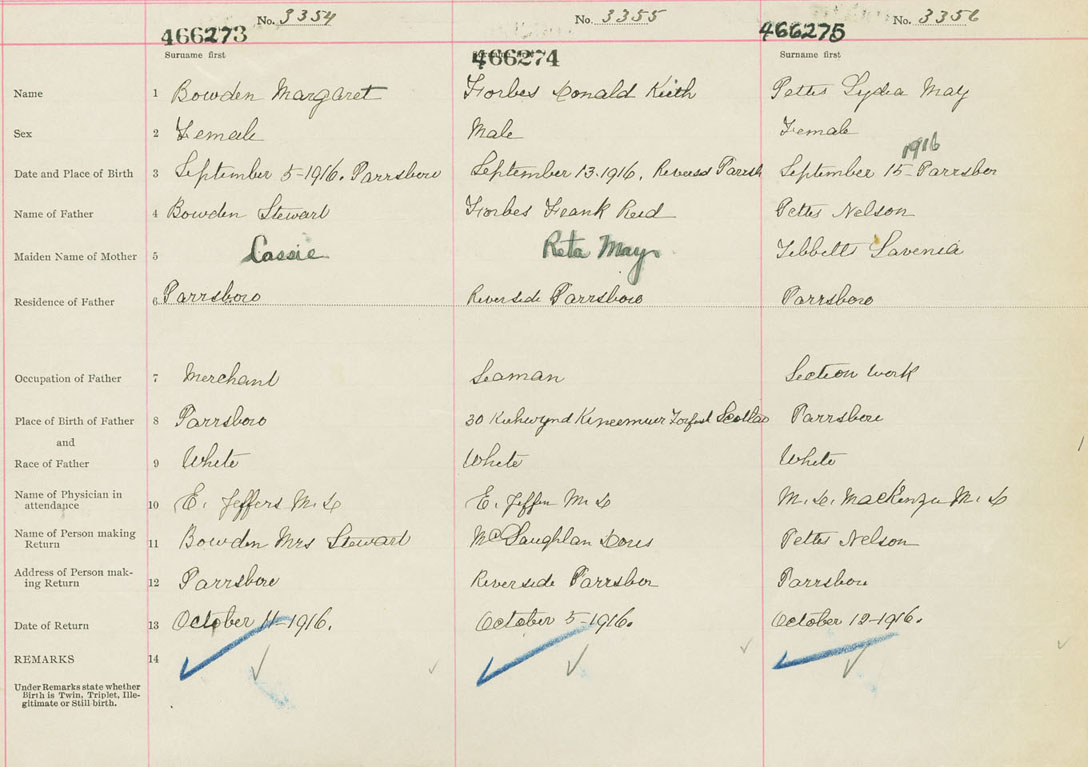 No. 3354 No. 3355 No. 3356
466273 466274 466275
Surname first Surname first Surname first
Name 1 Bowden Margaret Forbes Donald Keith Pettis Lydia May
Sex 2 Female Male Female
1916
Date and Place of Birth 3 September 5-1916. Parrsboro September 13-1916, Parrsb September 15- Parrsboro
Name of Father 4 Bowden Stewart Forbes Frank Reid Pettis Nelson
Maiden Name of Mother 5 Cassie Reta May Tibbetts Lavenia
Residence of Father 6 Parrsboro Riverside Parrsboro Parrsboro
Occupation of Father 7 Merchant Seaman Section work
Place of Birth of Father 8 Parrsboro 30 Scotlan Parrsboro
and
Race of Father 9 White White White
Name of Physician in
attendance 10 E. Jeffers M.D. E. Jeffers M.D. M.D. MacKenzie M.D.
Name of Person making
Return 11 Bowden Mrs Stewart McLaughlan Doris Pettis Nelson
Address of Person mak-
ing Return 12 Parrsboro Riverside Parrsboro Parrsboro
Date of Return 13 October 11-1916. October 5-1916. October 12-1916.
REMARKS 14
Under Remarks state whether
Birth is Twin, Triplet, Ille-
gitimate or Still birth.